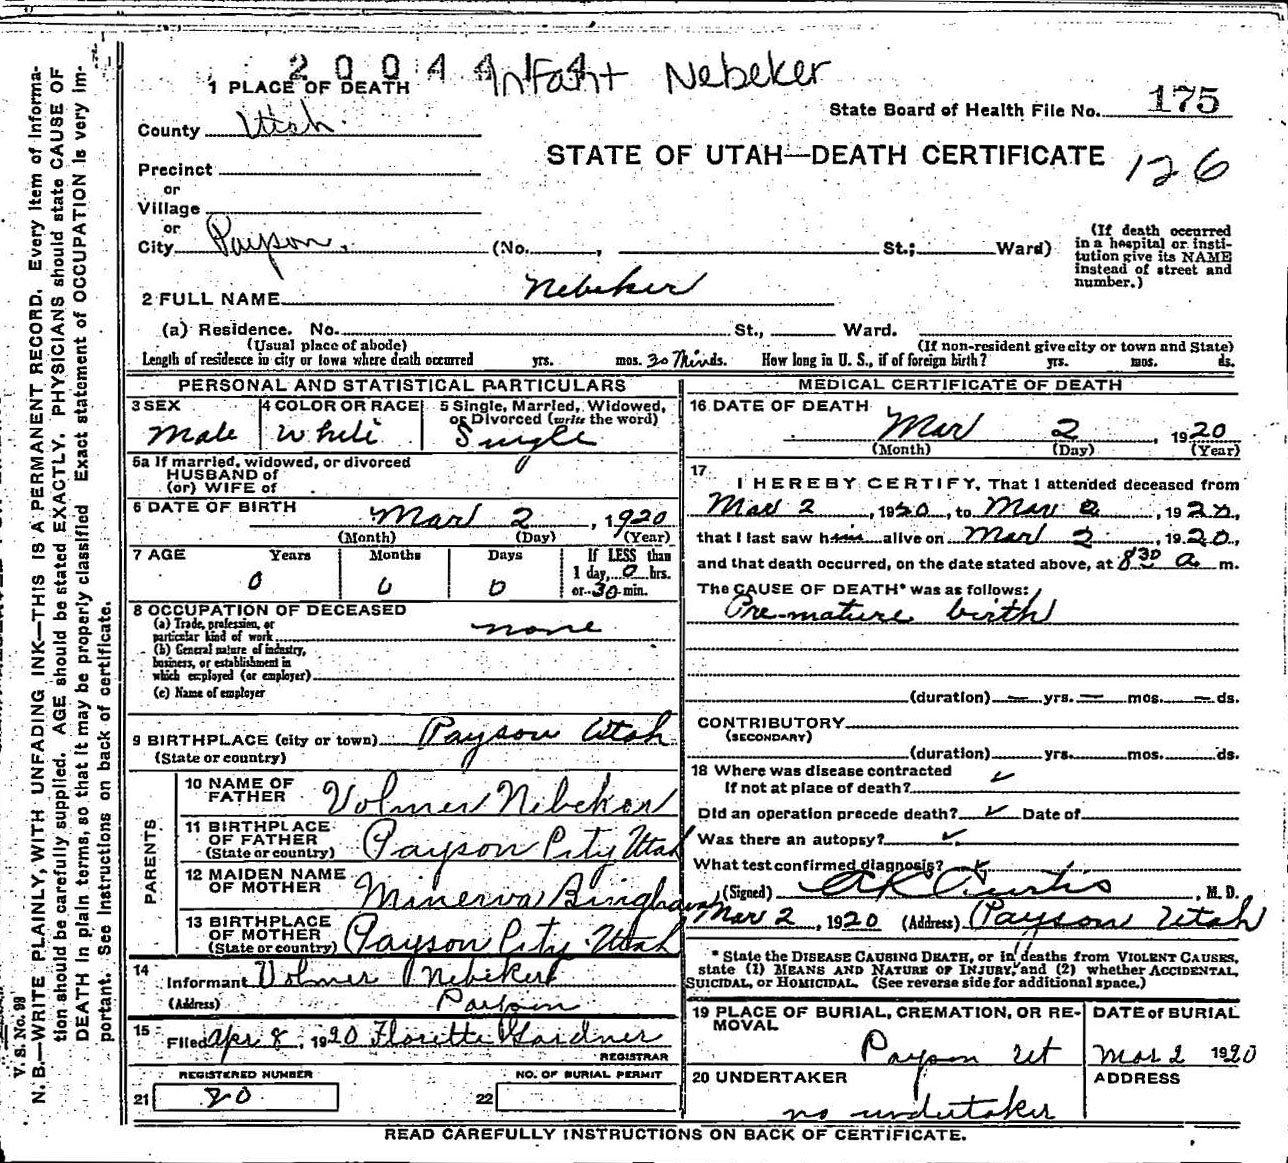 2 0 0 4 4 1 4
Infant Nebeker
1 PLACE OF DEATH
State Board of Health File No. 175
County Utah
STATE OF UTAH—DEATH CERTIFICATE 126
Precinct
or
Village
or
City Payson. (No. , St.; Ward)
(If death occurred in a hospital or insti-
tution give its NAME
instead of street and
number.)
2 FULL NAME Nebeker
(a) Residence. No. St., Ward.
(Usual place of abode) (If non-resident give city or town and State)
Length of residence in city or town where death occurred yrs. mos. 30 Min ds. How long in U. S., if of foreign birth? yrs. mos. ds.
PERSONAL AND STATISTICAL PARTICULARS
3 SEX
Male
4 COLOR OR RACE
White
5 Single, Married, Widowed,
or Divorced (write the word)
Single
5a If married, widowed, or divorced
HUSBAND of
(or) WIFE of
6 DATE OF BIRTH Mar 2, 1920
(Month) (Day) (Year)
7 AGE Years Months Days If LESS than
0 0 0 1 day, 0 hrs.
or 30 min.
8 OCCUPATION OF DECEASED
(a) Trade, profession, or
particular kind of work none
(b) General nature of industry,
business, or establishment in
which employed (or employer)
(c) Name of employer
9 BIRTHPLACE (city or town) Payson Utah
(State or country)
PARENTS
10 NAME OF
FATHER Volmer Nebeker
11 BIRTHPLACE
OF FATHER
(State or country) Payson City Utah
12 MAIDEN NAME
OF MOTHER Minerva Bingham
13 BIRTHPLACE
OF MOTHER
(State or country) Payson City Utah
14
Informant Volmer Nebeker
(Address) Payson
15
Filed Apr 8, 1920 Florette Gardner
REGISTRAR
REGISTERED NUMBER
21 20
NO. OF BURIAL PERMIT
22
MEDICAL CERTIFICATE OF DEATH
16 DATE OF DEATH
Mar 2, 1920
(Month) (Day) (Year)
17
I HEREBY CERTIFY, That I attended deceased from
Mar 2, 1920, to Mar 2, 1920,
that I last saw him alive on Mar 2, 1920,
and that death occurred, on the date stated above, at 8 30 a. m.
The CAUSE OF DEATH* was as follows:
Pre-mature birth
(duration) — yrs. — mos. — ds.
CONTRIBUTORY
(SECONDARY)
(duration) yrs. mos. ds.
18 Where was disease contracted
If not at place of death? ✓
Did an operation precede death? ✓ Date of
Was there an autopsy? ✓
What test confirmed diagnosis?
(Signed) A K Curtis, M. D.
Mar 2, 1920 (Address) Payson Utah
* State the DISEASE CAUSING DEATH, or in deaths from VIOLENT CAUSES,
state (1) MEANS AND NATURE OF INJURY, and (2) whether ACCIDENTAL,
SUICIDAL, or HOMICIDAL. (See reverse side for additional space.)
19 PLACE OF BURIAL, CREMATION, OR RE-
MOVAL
Payson Ut
DATE of BURIAL
Mar 2 1920
20 UNDERTAKER
no undertaker
ADDRESS
READ CAREFULLY INSTRUCTIONS ON BACK OF CERTIFICATE.
V. S. No. 98
N. B.—WRITE PLAINLY, WITH UNFADING INK—THIS IS A PERMANENT RECORD. Every item of Informa-
tion should be carefully supplied. AGE should be stated EXACTLY. PHYSICIANS should state CAUSE OF
DEATH in plain terms, so that it may be properly classified Exact statement of OCCUPATION is very im-
portant. See Instructions on back of certificate.